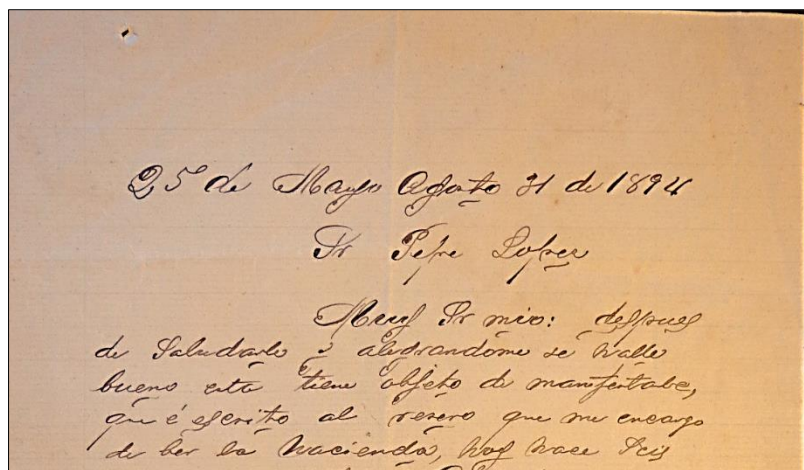 25 de Mayo Agosto 31 de 1894
Sr Pepe Lopez
Muy Sr mio: despues
de Saludarlo y alegrandome se halle
bueno esta tiene objeto de manifestale,
que é escrito al resero que me encargo
de ber la hacienda, hoy hace seis